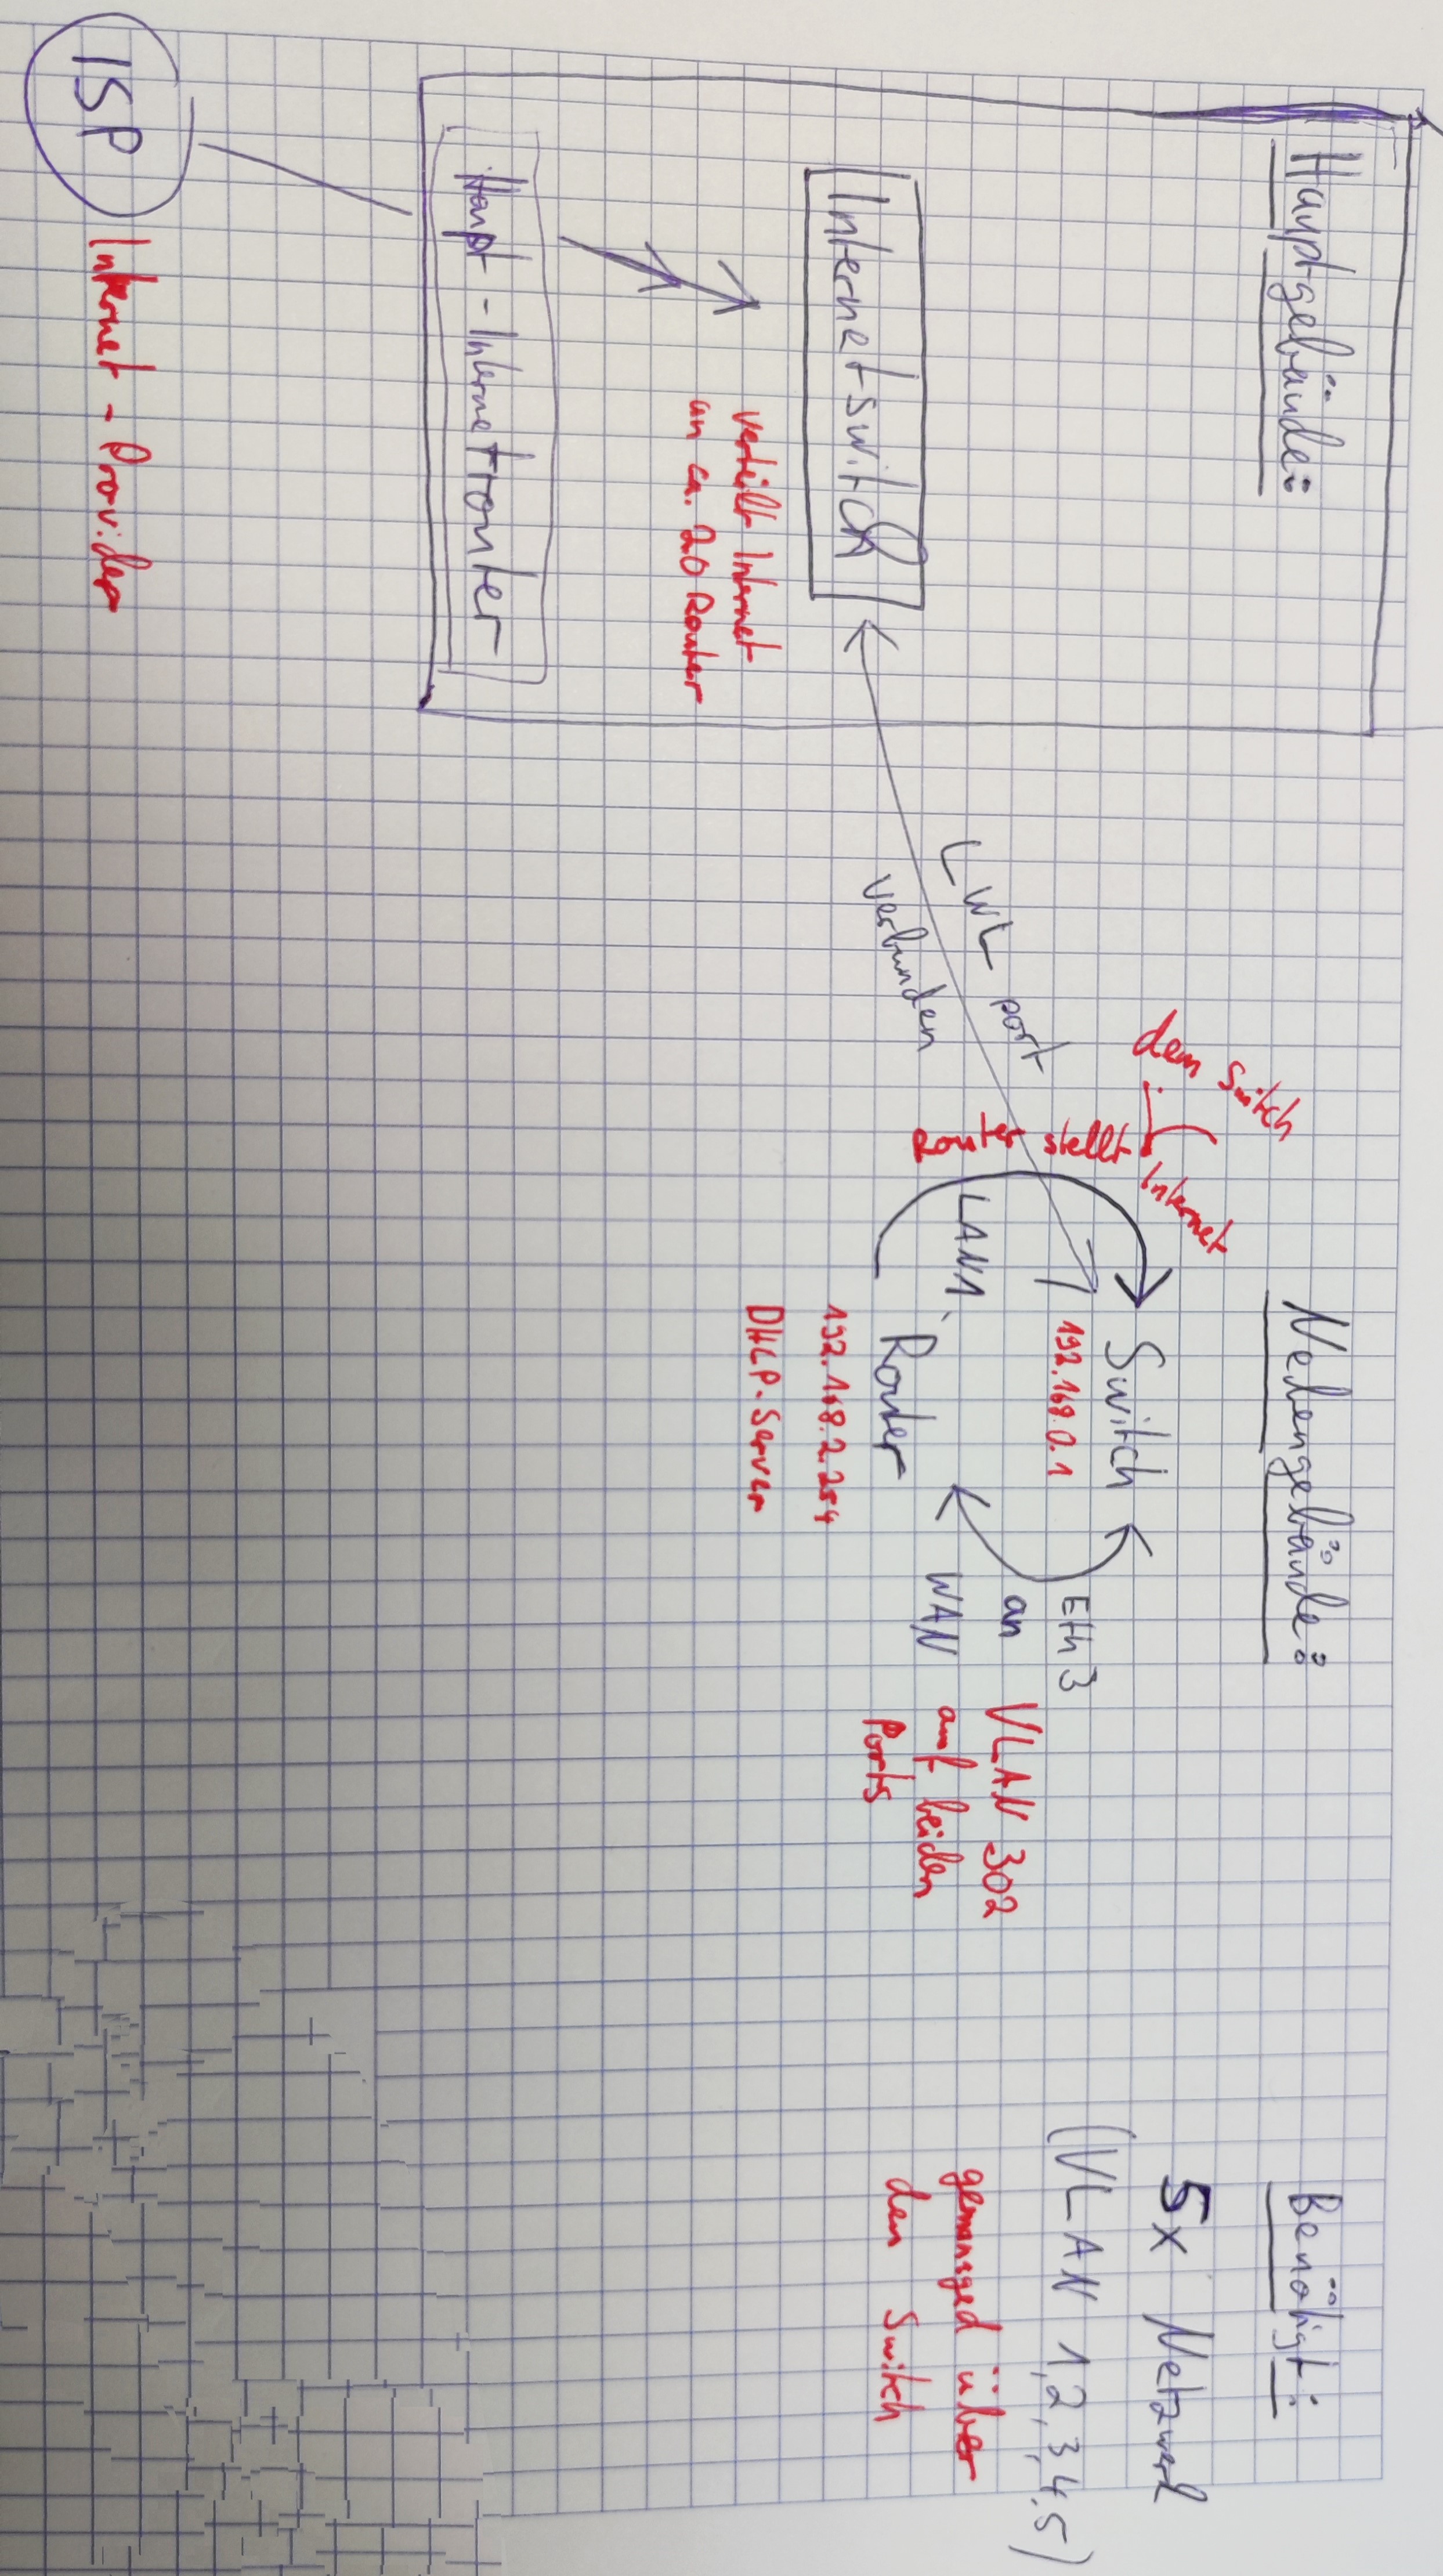 Hauptgebäude:
Internetswitch
verteilt Internet
an ca. 20 Router
Haupt - Internetrouter
ISP
Internet - Provider
LWL port
verbunden
Nebengebäude:
dem Switch
Router stellt
Internet
Switch
192.168.0.1
LAN1
Router
192.168.2.254
DHCP-Server
Eth 3
an
WAN
VLAN 302
auf beiden
Ports
Benötigt:
5x Netzwerk
(VLAN 1,2,3,4,5)
gemanaged über
den Switch